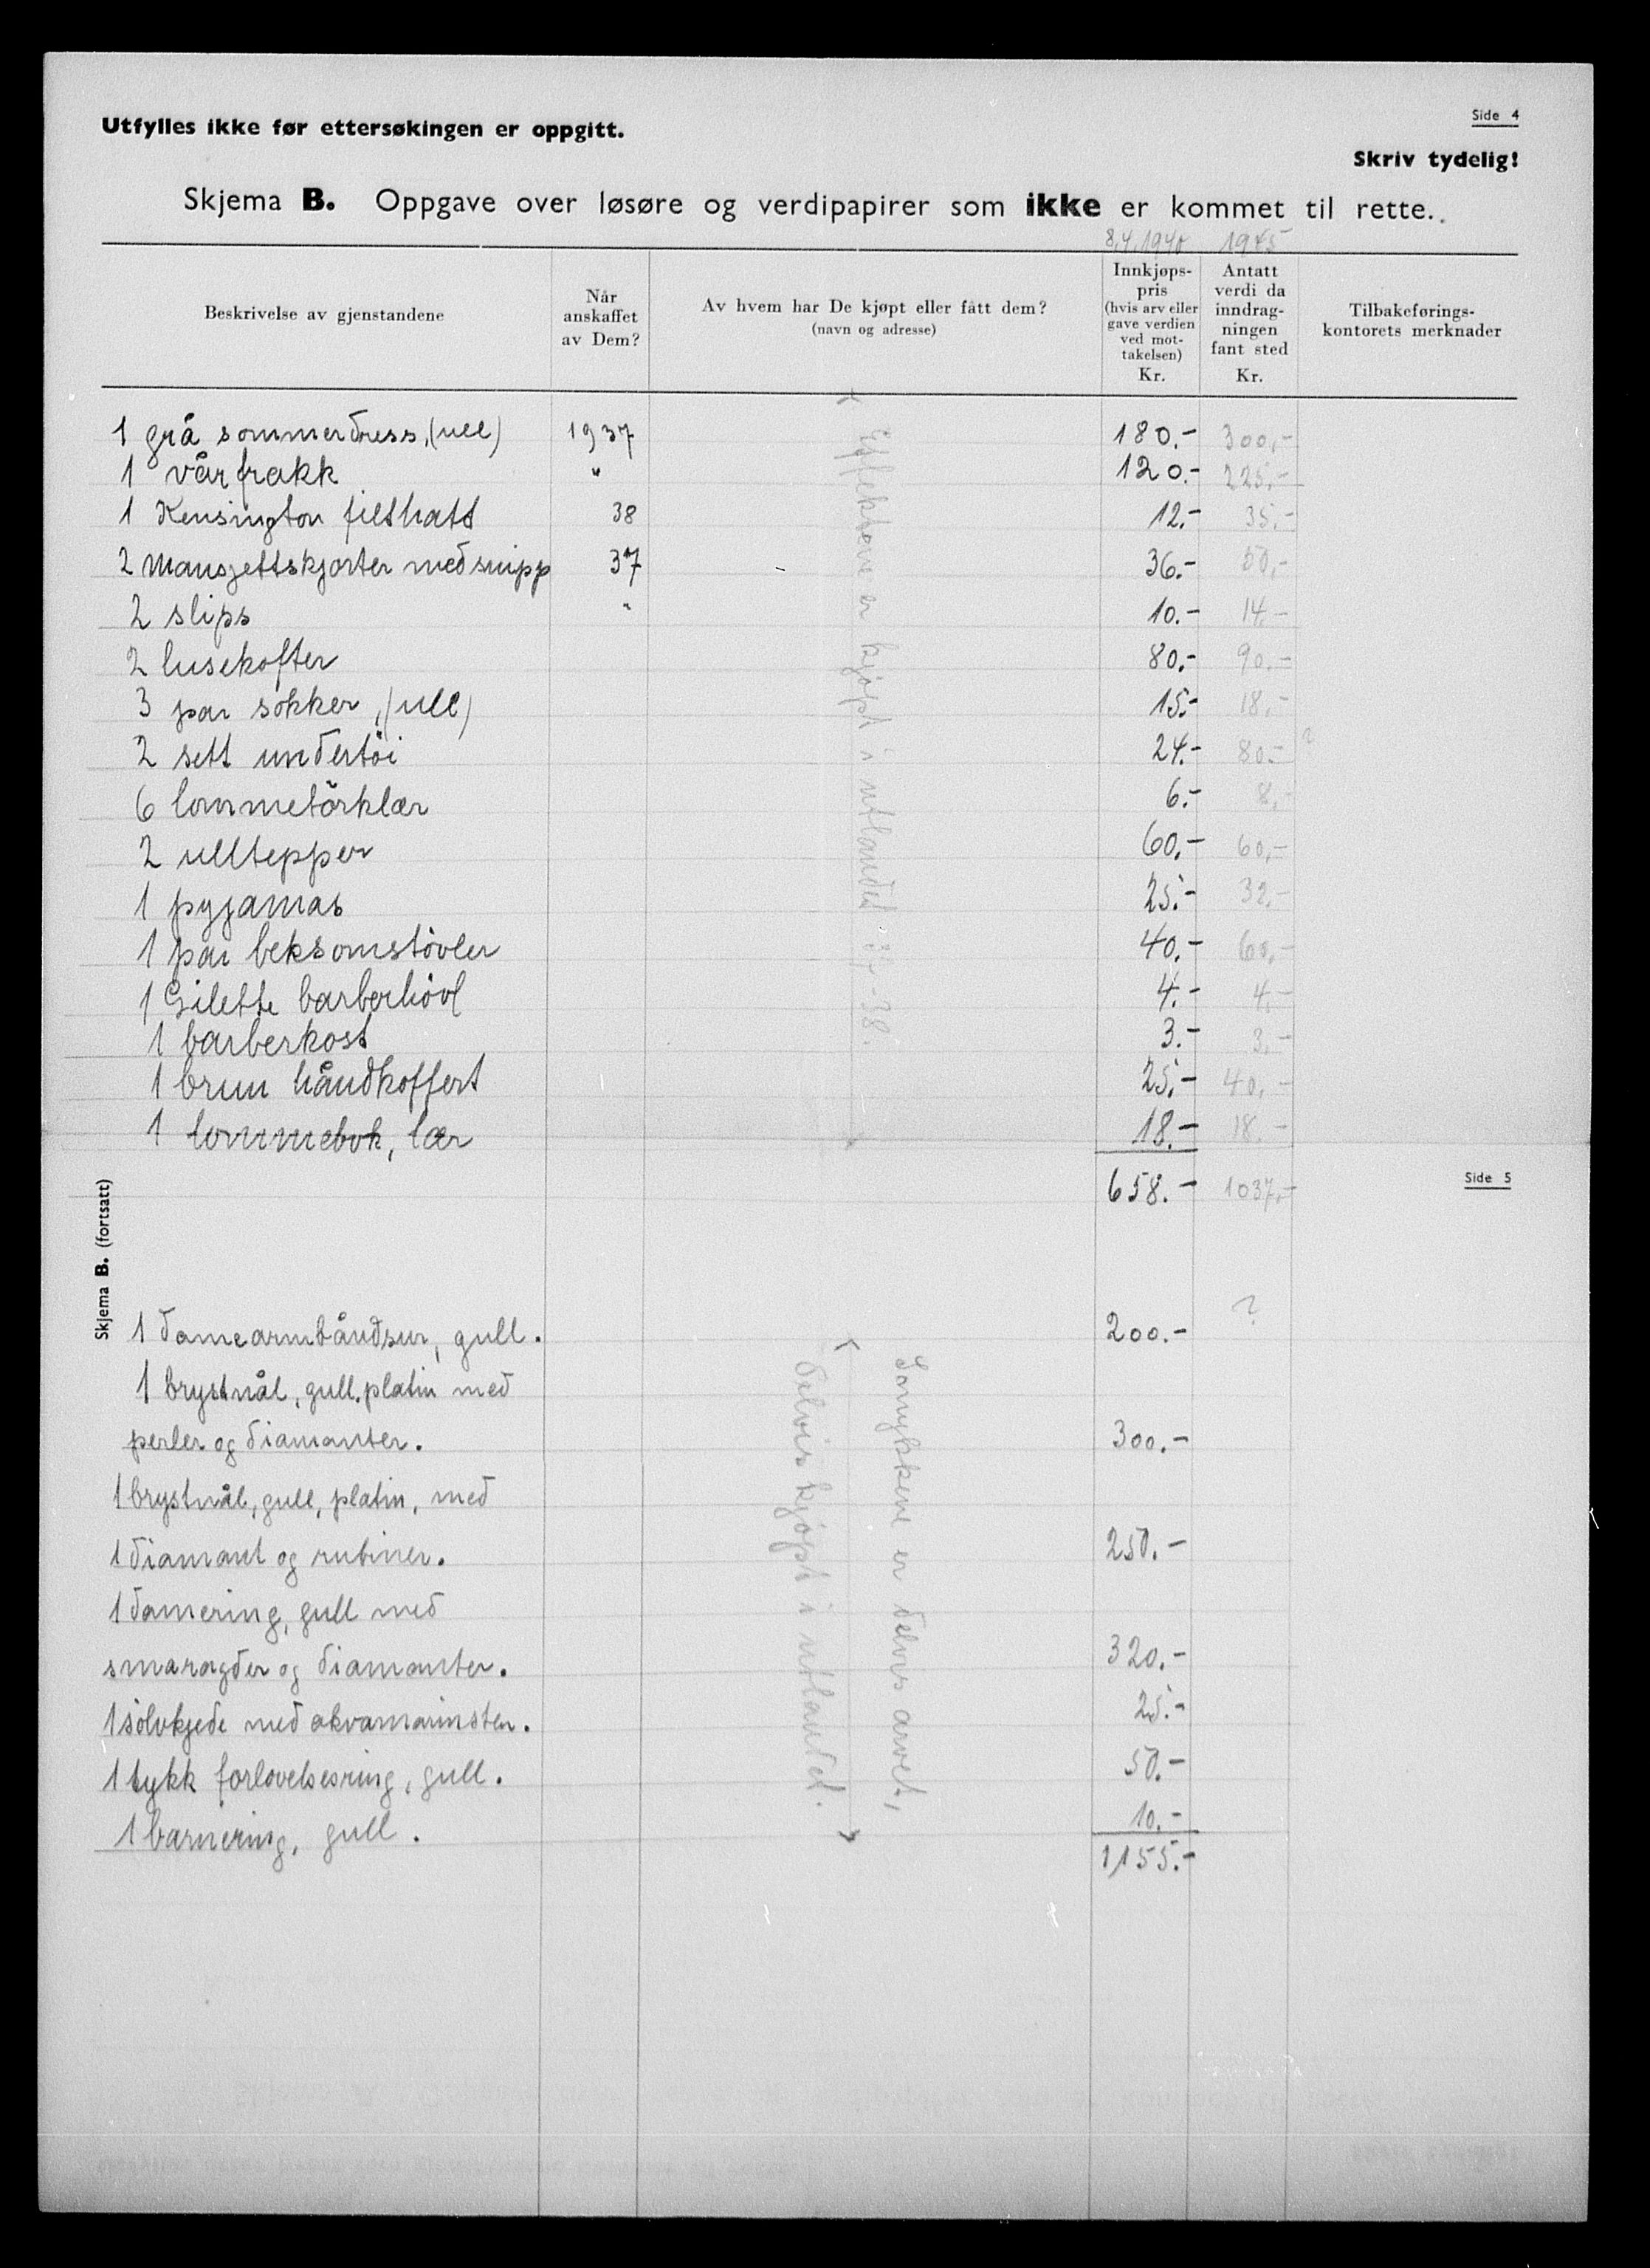 Side 4
Utfylles ikke før ettersøkingen er oppgitt.
Skriv tydelig!
Skjema B. Oppgave over løsøre og verdipapirer som ikke er kommet til rette.
8.4.1940 1945
Beskrivelse av gjenstandene
Når anskaffet av Dem?
Av hvem har De kjøpt eller fått dem? (navn og adresse)
Innkjøps-pris (hvis arv eller gave verdien ved mot-takelsen) Kr.
Antatt verdi da inndrag-ningen fant sted Kr.
Tilbakeførings-kontorets merknader
1 grå sommerdress, (ull) 1937 180.- 300,-
1 vårfrakk " 120.- 225,-
1 Kensington filthatt 38 12.- 35.-
2 Mansjettskjorter med snipp 37 36.- 50,-
2 slips " 10.- 14.-
2 lusekofter 80.- 90.-
3 par sokker, (ull) 15.- 18.-
2 sett undertöi 24.- 80.- ?
6 lommetörklær 6.- 8,-
2 ulltepper 60.- 60,-
1 pyjamas 25.- 32.-
1 par beksomstövler 40.- 60,-
1 Gilette barberhövl 4.- 4.-
1 barberkost 3.- 3.-
1 brun håndkoffert 25.- 40,-
1 lommebok, lær 18.- 18.-
658.- 1037,-
Effektene er kjöpt i utlandet 37-38.
Side 5
Skjema B. (fortsatt)
1 damearmbåndsur, gull. 200.- ?
1 brystnål, gull. platin med
perler og diamanter. 300.-
1 brystnål, gull, platin, med
1 diamant og rubiner. 250.-
1 damering, gull med
smaragder og diamanter. 320.-
1 sölvkjede med akvamarinsten. 25.-
1 tykk forlovelsesring, gull. 50.-
1 barnering, gull. 10.-
1155.-
Smykkene er delvis arvet,
delvis kjöpt i utlandet.